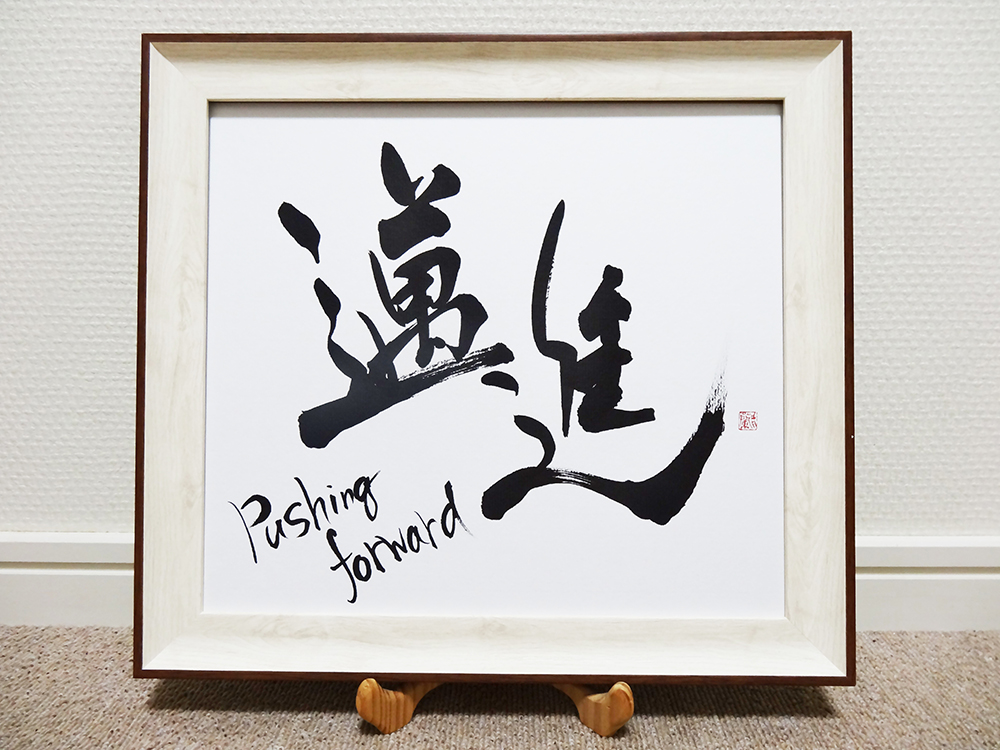 邁進
Pushing
forward